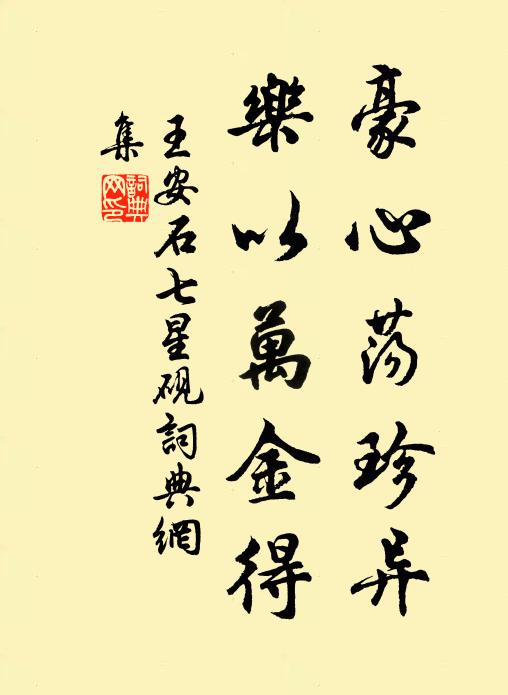 豪心荡珍异
樂以萬金得
王安石七星硯詞典網
集
詞典網印